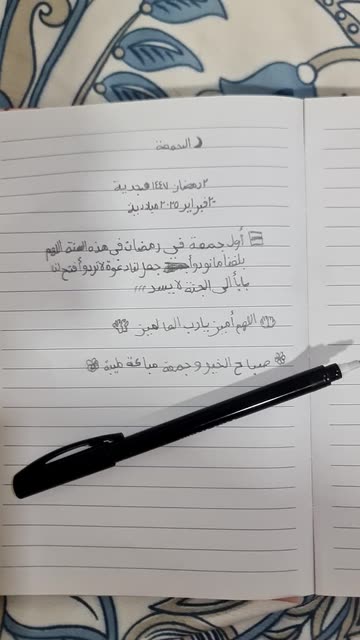 الجمعة
٢ رمضان ١٤٤٧ هجدية
٢٠ فبراير ٢٠٢٥ ميلادية
أول جمعة في رمضان في هذه السنة اللهم
بلغنا ما نودوا جعل لنا دعوة لا تردوا فتح لنا
بابا الى الجنة لا يسد ،،،
اللهم أمين يارب العالمين
صباح الخير و جمعة مباركة طيبة